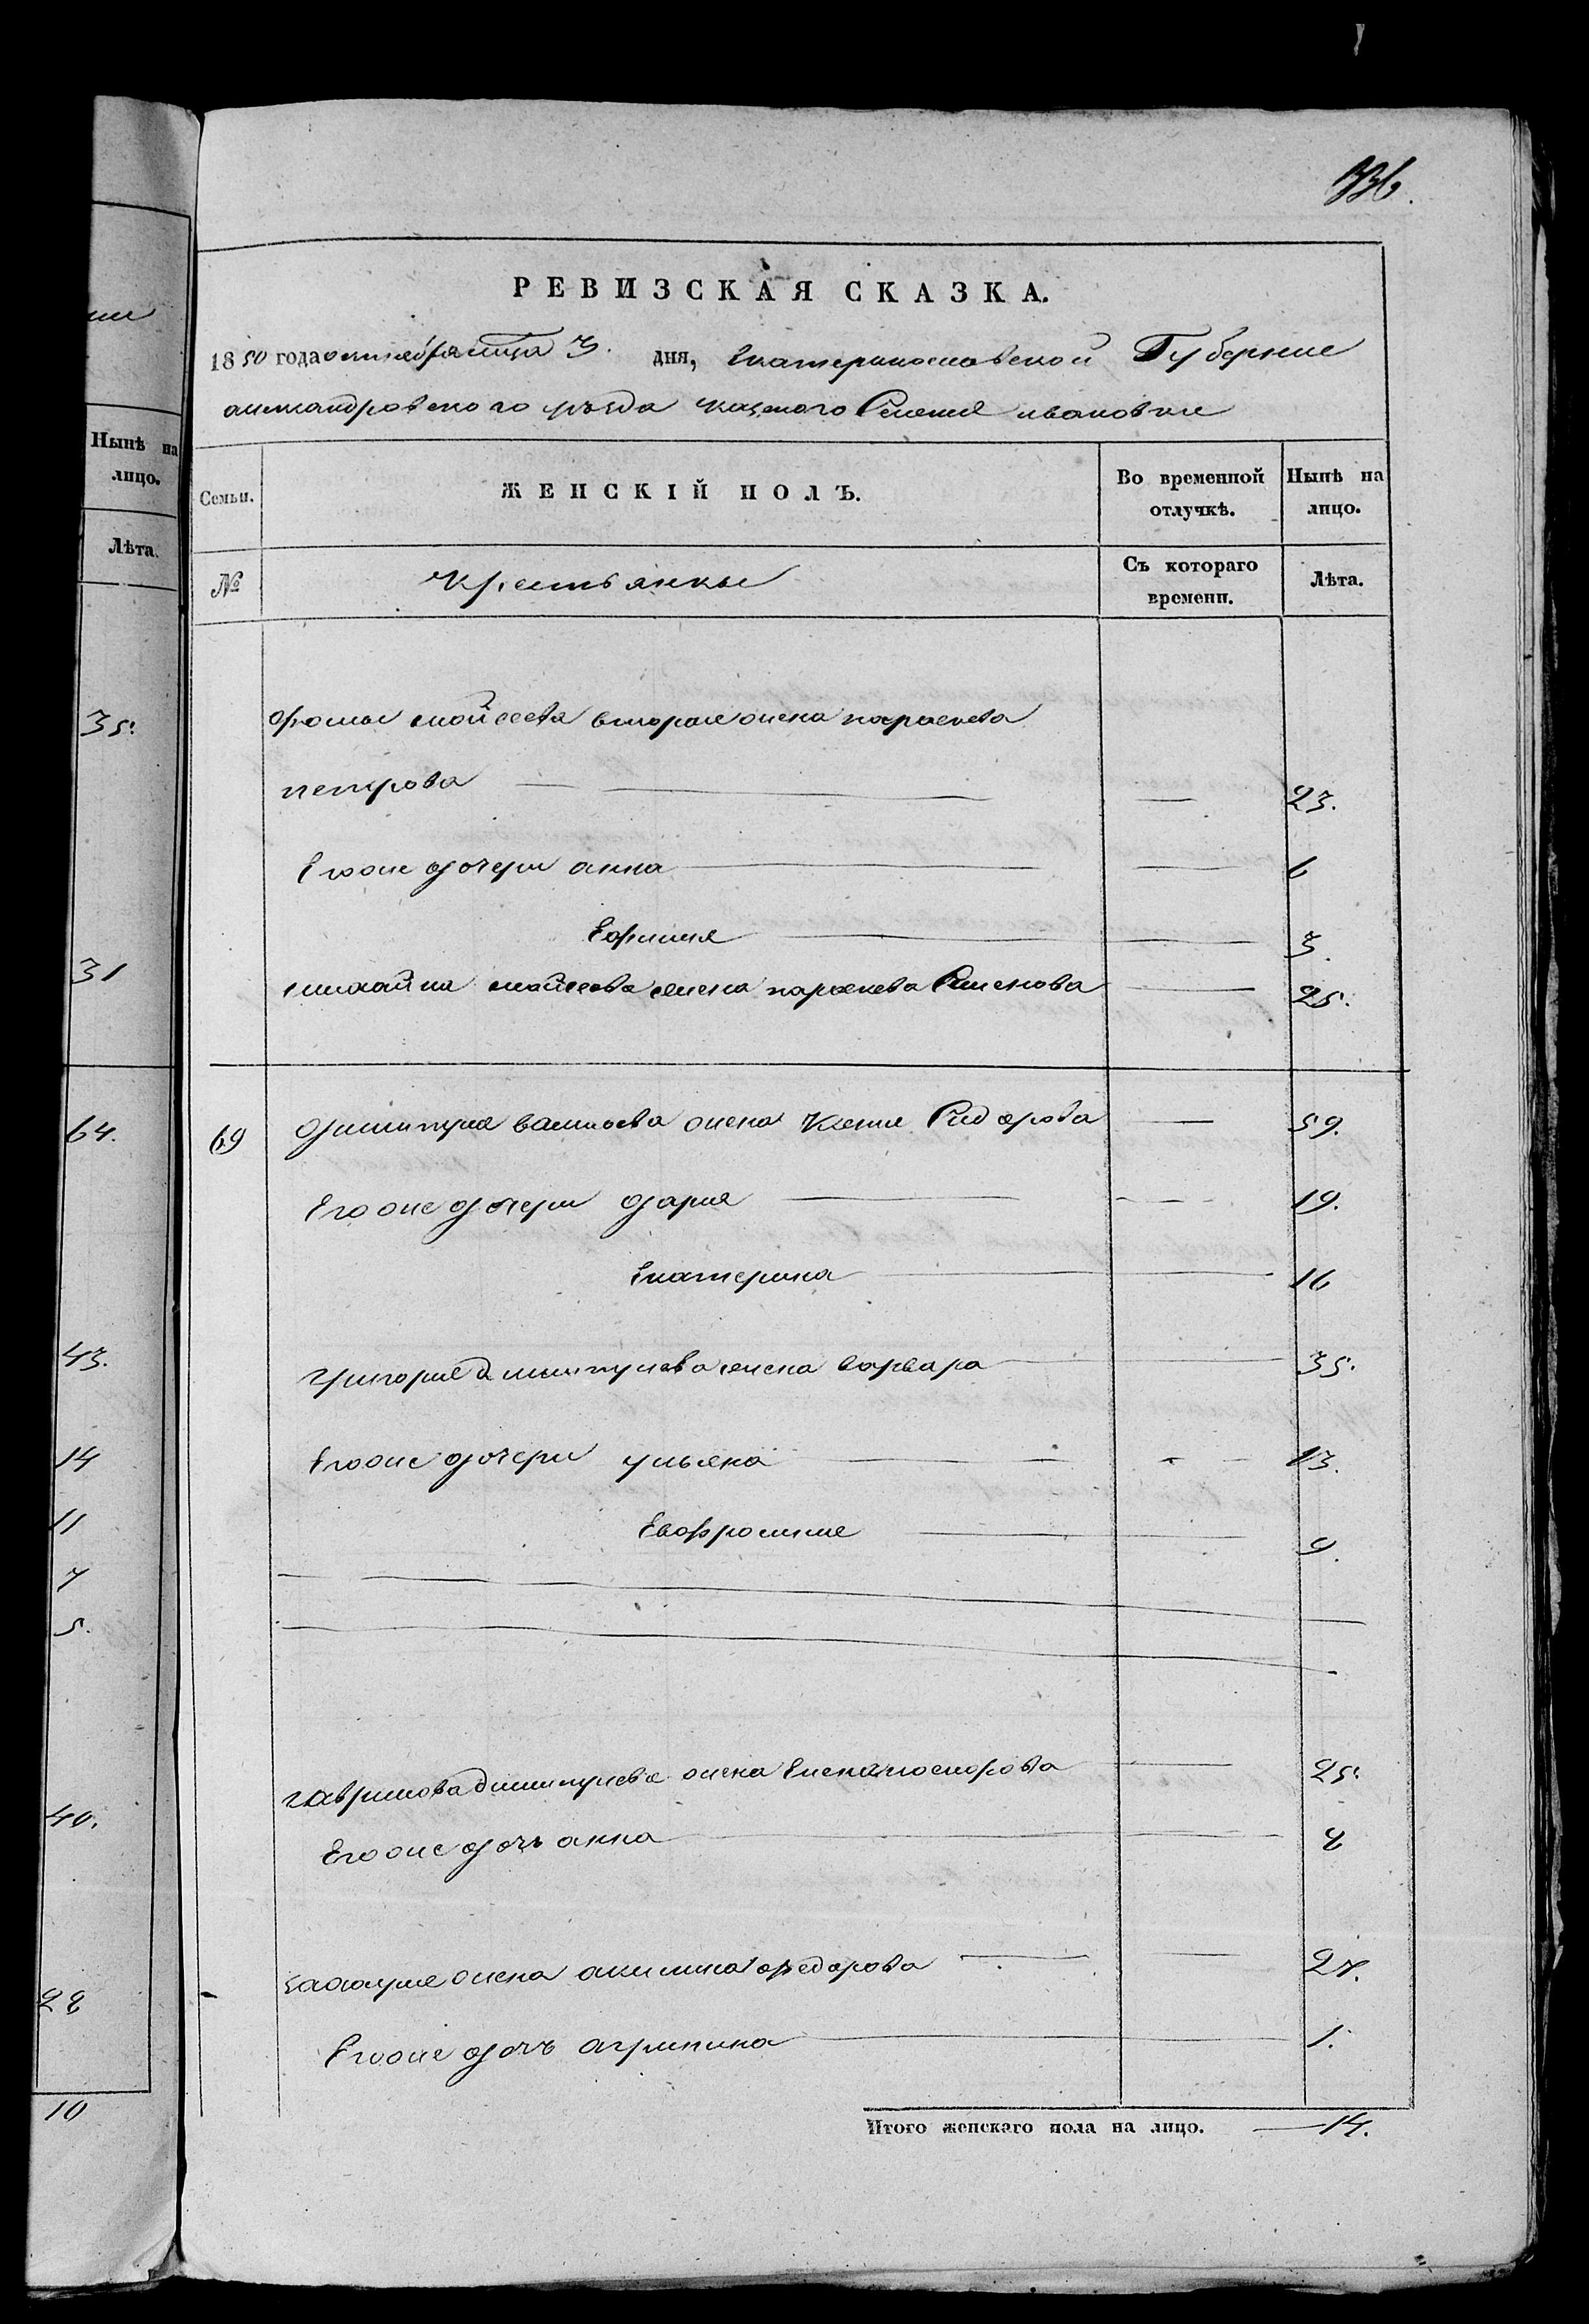 336.
РЕВИЗСКАЯ СКАЗКА.
1850 года октября мца 3. дня, Екатеринославской Губернии
александровского уезда казеного Селения ивановки
Семьи. ЖЕНСКІЙ ПОЛЪ. Во временной отлучкѣ. Нынѣ на лицо.
№ Крестьянки Съ котораго времени. Лѣта.
фомы мойсеева вторая жена параскева
петрова 23.
Его же дочери анна 6
Ефимия 3.
михайла мойсеева жена параскева Семенова 25.
69 дмитрия васильева жена Ксения Сидорова 59.
Его же дочери дария 19.
Екатерина 16
григория дмитриева жена варвара 35.
Его же дочери ульяна 13.
Евфросиния 9.
гаврилова дмитриева жена Елена нестерова 25.
Его же дочь анна 8
жена акилина федорова 27.
Его же дочь агрипина 1.
Итого женскаго пола на лицо. 14.
Нынѣ на
лицо.
Лѣта.
35.
31
64.
43.
14
11
7
5.
40.
28
10